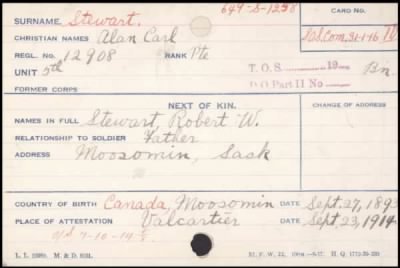 649-S-1238
CARD NO.
SURNAME. Stewart.
CHRISTIAN NAMES Alan Carl
S.O.S. Com. 31-1-16
REGL. NO. 12908 RANK Pte
UNIT 5th T.O.S. 19 Bn.
D.O Part II No
FORMER CORPS
NEXT OF KIN. CHANGE OF ADDRESS
NAMES IN FULL Stewart, Robert W.
RELATIONSHIP TO SOLDIER Father
ADDRESS Moosomin, Sask
COUNTRY OF BIRTH Canada, Moosomin DATE Sept. 27, 1893
PLACE OF ATTESTATION Valcartier DATE Sept. 23, 1914
O/S 7-10-14
L. L. M. & D. M. F. W. 22. H. Q. 1772-39-339